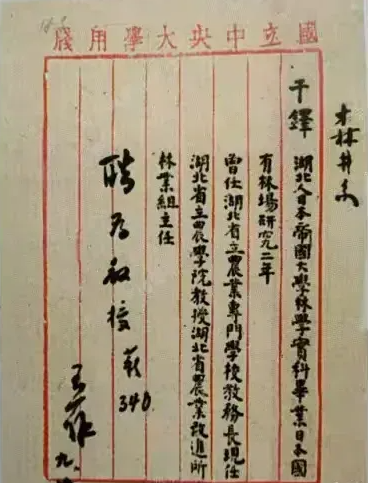 國立中央大學用牋
森林系
干鐸 湖北人日本帝國大學林學實科畢業日本國
有林場研究二年
曾任湖北省立農業專門學校教務長現任
湖北省立農學院教授湖北省農業改進所
林業組主任
聘為教授 薪
340
九、